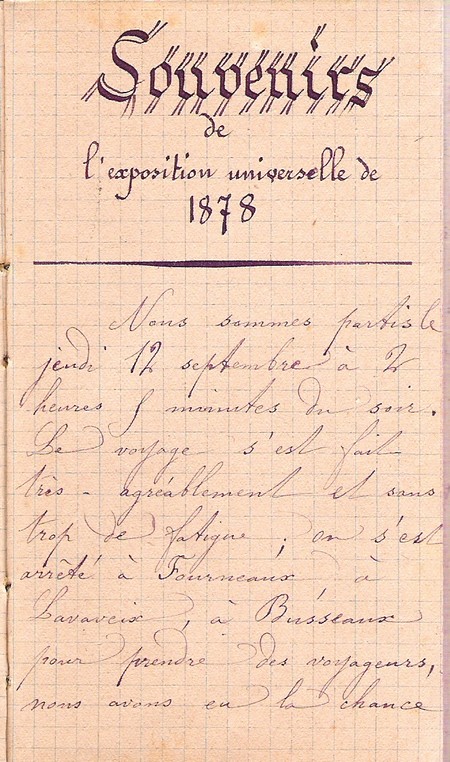 Souvenirs
de
l'exposition universelle de
1878
Nous sommes partis le
jeudi 12 septembre à 2
heures 5 minutes du soir.
Le voyage s'est fait
très-agréablement et sans
trop de fatigue ; on s'est
arrêté à Fourneaux, à
Lavaveix, à Busseaux
pour prendre des voyageurs,
nous avons eu la chance